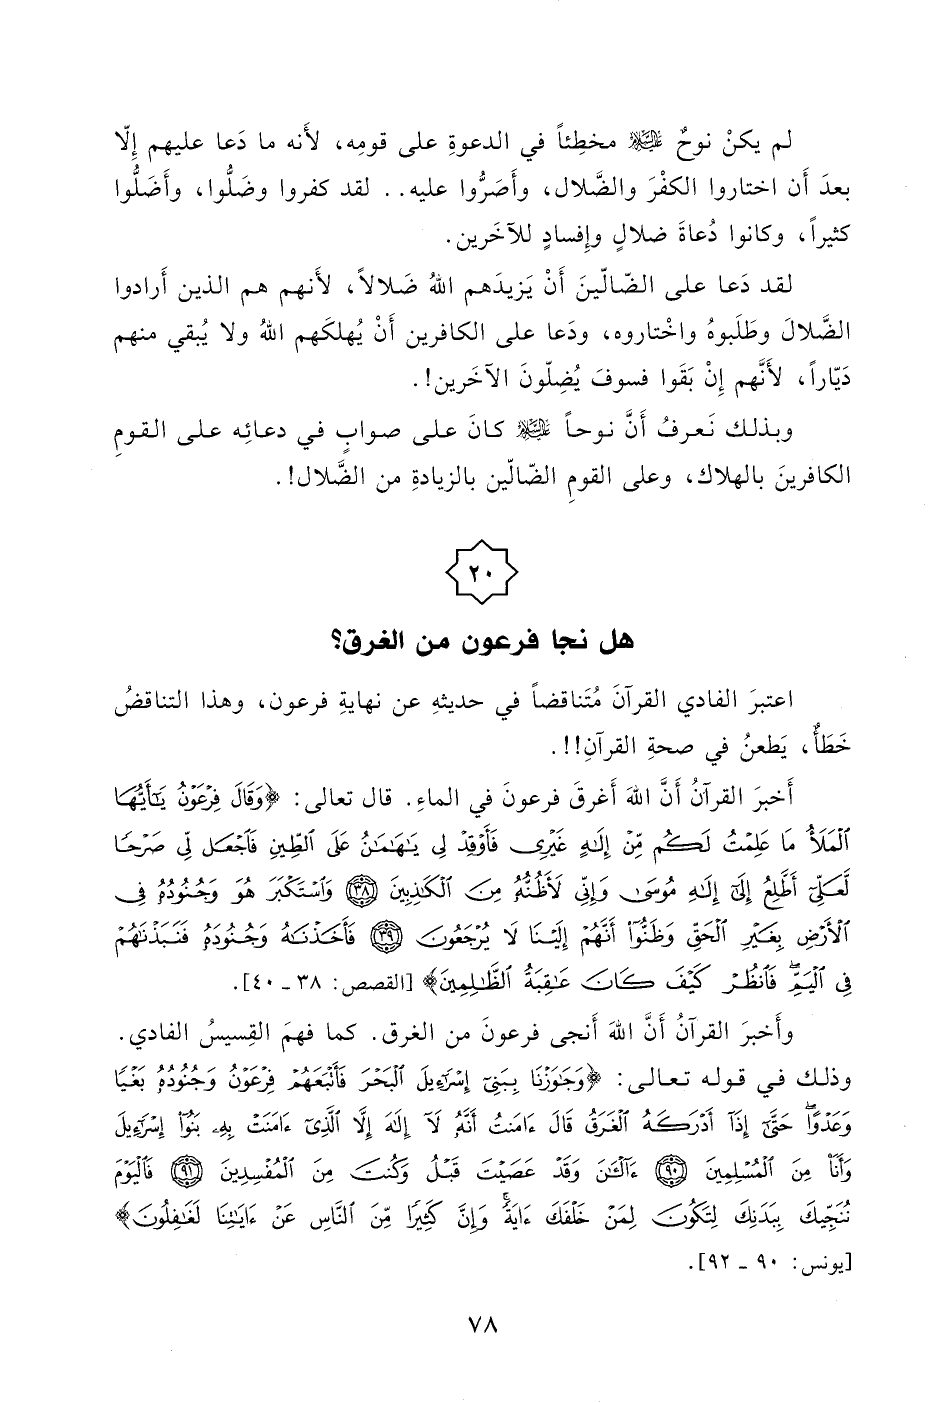 لم يكنْ نوحٌ عليه السلام مخطِئاً في الدعوةِ على قومِه، لأَنه ما دَعا عليهم إِلّا
بعدَ أَن اختاروا الكفْرَ والضَّلال، وأَصَرُّوا عليه.. لقد كفروا وضَلُّوا، وأَضَلُّوا
كثيراً، وكانوا دُعاةَ ضلالٍ وإِفسادٍ للآخَرين.
لقد دَعا على الضّالّينَ أَنْ يَزيدَهم اللهُ ضَلالاً، لأَنهم هم الذين أَرادوا
الضَّلالَ وطَلَبوهُ واخْتاروه، ودَعا على الكافرين أَنْ يُهلكَهم اللهُ ولا يُبقي منهم
دَيّاراً، لأَنَّهم إِنْ بَقَوا فسوفَ يُضِلّونَ الآخَرين!.
وبذلك نَعرفُ أَنَّ نوحاً عليه السلام كانَ على صوابٍ في دعائِه على القومِ
الكافرينَ بالهلاك، وعلى القومِ الضّالّين بالزيادةِ من الضَّلال!.
٢٠
هل نجا فرعون من الغرق؟
اعتبرَ الفادي القرآنَ مُتَناقضاً في حديثهِ عن نهايةِ فرعون، وهذا التناقضُ
خَطَأٌ، يَطعنُ في صحةِ القرآنِ!!.
أَخبرَ القرآنُ أَنَّ اللهَ أَغرقَ فرعونَ في الماءِ. قال تعالى: ﴿وَقَالَ فِرْعَوْنُ يَـٰٓأَيُّهَا
ٱلْمَلَأُ مَا عَلِمْتُ لَكُم مِّنْ إِلَـٰهٍ غَيْرِى فَأَوْقِدْ لِى يَـٰهَـٰمَـٰنُ عَلَى ٱلطِّينِ فَٱجْعَل لِّى صَرْحًا
لَّعَلِّىٓ أَطَّلِعُ إِلَىٰٓ إِلَـٰهِ مُوسَىٰ وَإِنِّى لَأَظُنُّهُۥ مِنَ ٱلْكَـٰذِبِينَ ٣٨ وَٱسْتَكْبَرَ هُوَ وَجُنُودُهُۥ فِى
ٱلْأَرْضِ بِغَيْرِ ٱلْحَقِّ وَظَنُّوٓا۟ أَنَّهُمْ إِلَيْنَا لَا يُرْجَعُونَ ٣٩ فَأَخَذْنَـٰهُ وَجُنُودَهُۥ فَنَبَذْنَـٰهُمْ
فِى ٱلْيَمِّ ۖ فَٱنظُرْ كَيْفَ كَانَ عَـٰقِبَةُ ٱلظَّـٰلِمِينَ﴾ [القصص: ٣٨ ـ ٤٠].
وأَخبرَ القرآنُ أَنَّ اللهَ أَنجى فرعونَ من الغرق. كما فهمَ القِسيسُ الفادي.
وذلك في قوله تعالى: ﴿وَجَـٰوَزْنَا بِبَنِىٓ إِسْرَٰٓءِيلَ ٱلْبَحْرَ فَأَتْبَعَهُمْ فِرْعَوْنُ وَجُنُودُهُۥ بَغْيًا
وَعَدْوًا ۖ حَتَّىٰٓ إِذَآ أَدْرَكَهُ ٱلْغَرَقُ قَالَ ءَامَنتُ أَنَّهُۥ لَآ إِلَـٰهَ إِلَّا ٱلَّذِىٓ ءَامَنَتْ بِهِۦ بَنُوٓا۟ إِسْرَٰٓءِيلَ
وَأَنَا۠ مِنَ ٱلْمُسْلِمِينَ ٩٠ ءَآلْـَٔـٰنَ وَقَدْ عَصَيْتَ قَبْلُ وَكُنتَ مِنَ ٱلْمُفْسِدِينَ ٩١ فَٱلْيَوْمَ
نُنَجِّيكَ بِبَدَنِكَ لِتَكُونَ لِمَنْ خَلْفَكَ ءَايَةً ۚ وَإِنَّ كَثِيرًا مِّنَ ٱلنَّاسِ عَنْ ءَايَـٰتِنَا لَغَـٰفِلُونَ﴾
[يونس: ٩٠ ـ ٩٢].
٧٨